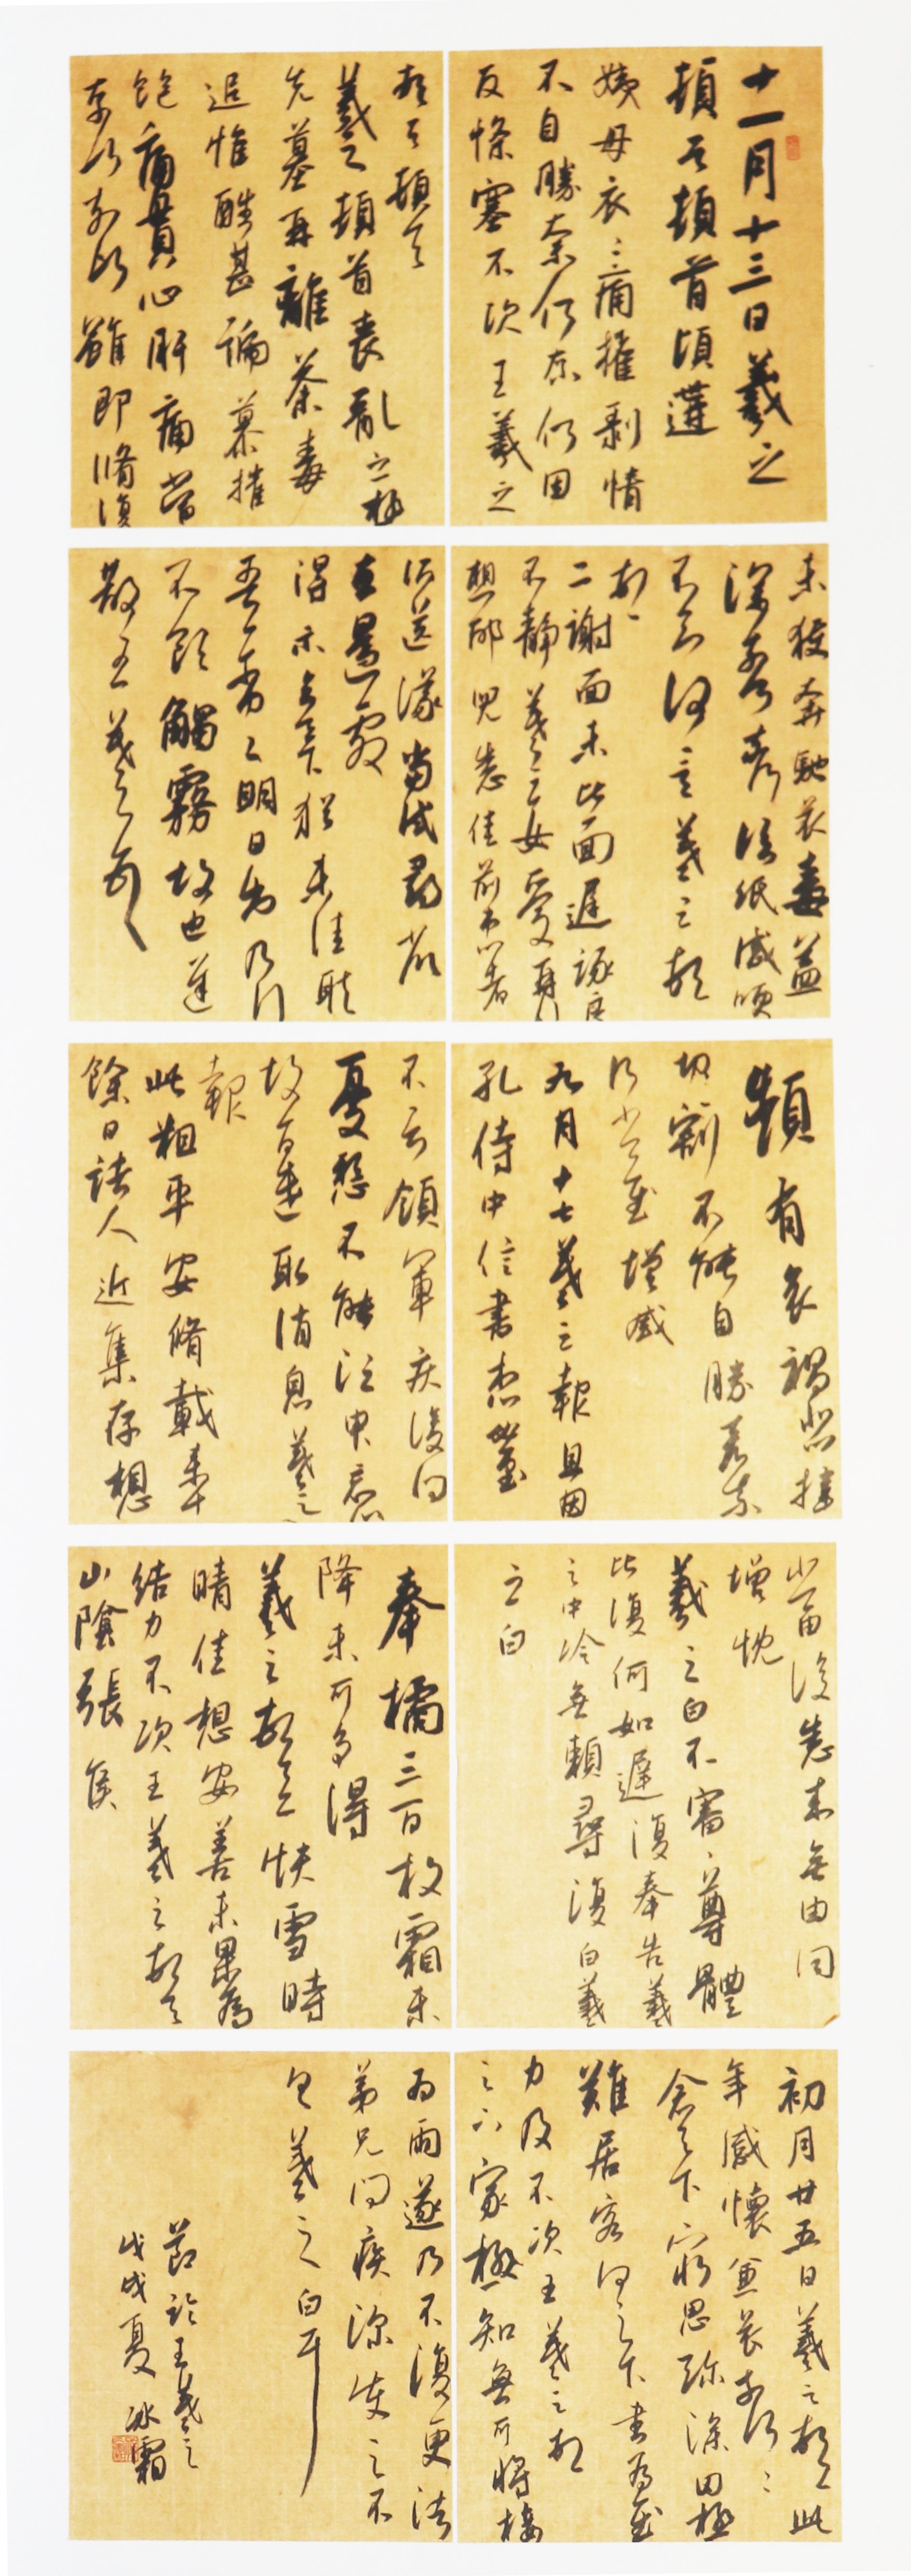 十一月十三日羲之
頓首頓首頃遘
姨母哀哀痛摧剥情
不自勝奈何奈何因
反惨塞不次王羲之
頓首頓首
羲之頓首喪亂之極
先墓再離荼毒
追惟酷甚號慕摧
絶痛貫心肝痛當
奈何奈何雖即脩復
未獲奔馳哀毒益
深奈何奈何臨紙感哽
不知何言羲之頓
首
二謝面未比面遲詠良
不静羲之女愛再
想邰兒悉佳前患者
以送議當試尋省
左邊劇
得示知足下猶未佳耿
吾亦劣劣明日出乃行
不欲觸霧故也遲
散王羲之頓首
頻有哀禍悲摧
切割不能自勝奈何奈
何省慰增感
九月十七羲之報且因
孔侍中信書想必至
不知領軍疾後問
憂懸不能須臾忘心
故旨遣取消息羲之
報
此粗平安脩載來十
餘日諸人近集存想
當復悉來無由同
增慨
羲之白不審尊體
比復何如遲復奉告羲
之中冷無賴尋復白羲
之白
奉橘三百枚霜未
降未可多得
羲之頓首快雪時
晴佳想安善未果為
結力不次王羲之頓首
山陰張侯
初月廿五日羲之頓首此
年感懷兼哀奈何奈
念足下窮思深因極
難居容何之下書為慰
力及不次王羲之頓
之六家極知無可將接
為雨遂乃不復更諸
弟兄問疾深使之不
白羲之白耳
節臨王羲之
戊戌夏 冰霜